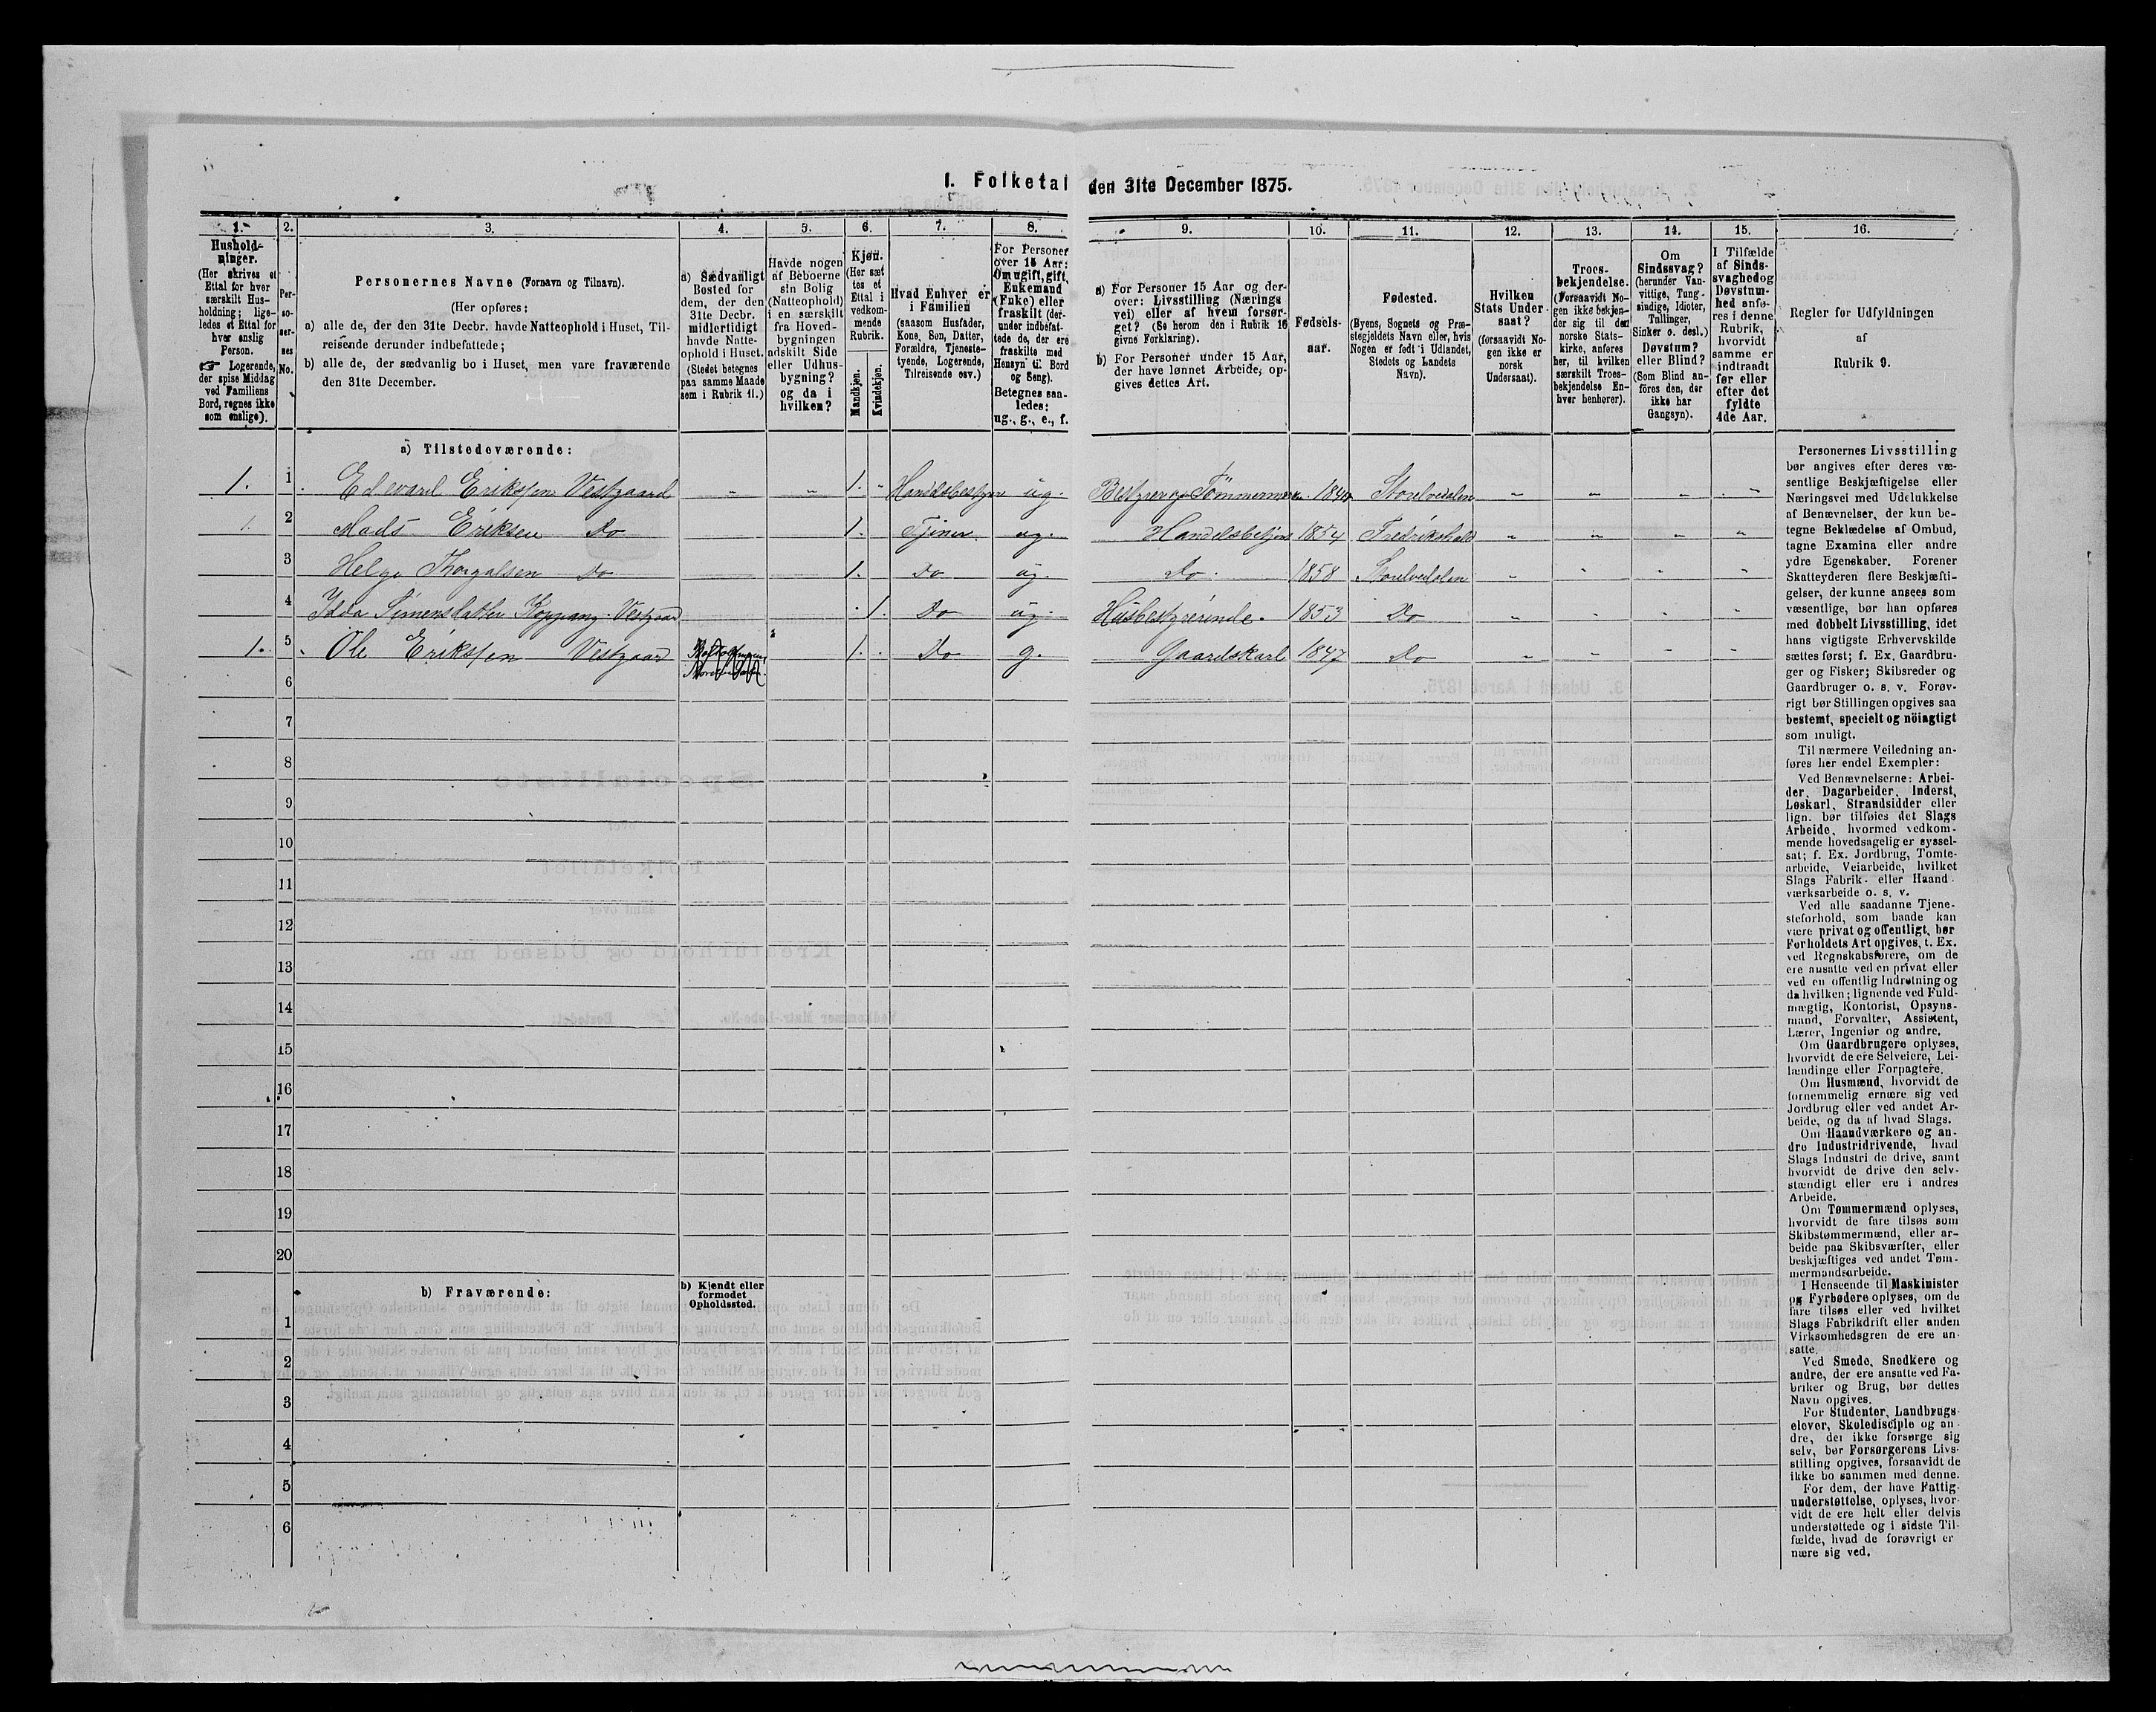 1. Folketal den 31te December 1875.
1.
Hushold-
ninger.
(Her skrives et
Ettal for hver
særskilt Hus-
holdning; lige-
ledes et Ettal for
hver enslig
Person.
☞ Logerende,
der spise Middag
ved Familiens
Bord, regnes ikke
som enslige).
2.
Per-
so-
ner-
nes
No.
3.
Personernes Navne (Fornavn og Tilnavn).
(Her opføres:
a) alle de, der den 31te Decbr. havde Natteophold i Huset, Til-
reisende derunder indbefattede;
b) alle de, der sædvanlig bo i Huset, men vare fraværende
den 31te December.
4.
a) Sædvanligt
Bosted for
dem, der den
31te Decbr.
midlertidigt
havde Natte-
ophold i Huset.
(Stedet betegnes
paa samme Maade
som i Rubrik 11.)
5.
Havde nogen
af Beboerne
sin Bolig
(Natteophold)
i en særskilt
fra Hoved-
bygningen
adskilt Side
eller Udhus-
bygning?
og da i
hvilken?
6.
Kjøn.
(Her sæt
tes et
Ettal i
vedkom-
mende
Rubrik.
Mandkjøn.
Kvindekjøn.
7.
Hvad Enhver er
i Familien
(saasom Husfader,
Kone, Søn, Datter,
Forældre, Tjeneste-
tyende, Logerende,
Tilreisende osv.)
8.
For Personer
over 15 Aar:
Om ugift, gift,
Enkemand
(Enke) eller
fraskilt (der-
under indbefat-
tede de, der ere
fraskilte med
Hensyn til Bord
og Seng).
Betegnes saa-
ledes:
ug., g., e., f.
9.
a) For Personer 15 Aar og der-
over: Livsstilling (Nærings
vei) eller af hvem forsør-
get? (Se herom den i Rubrik 16
givne Forklaring).
b) For Personer under 15 Aar,
der have lønnet Arbeide, op-
gives dettes Art.
10.
Fødsels-
aar.
11.
Fødested.
(Byens, Sognets og Præ-
stegjeldets Navn eller, hvis
Nogen er født i Udlandet,
Stedets og Landets
Navn).
12.
Hvilken
Stats Under
saat?
(forsaavidt No-
gen ikke er
norsk
Undersaat).
13.
Troes-
bekjendelse.
(Forsaavidt No-
gen ikke bekjen-
der sig til den
norske Stats-
kirke, anføres
her, til hvilken
særskilt Troes-
bekjendelse En-
hver henhører).
14.
Om
Sindssvag?
(herunder Van-
vittige, Tung-
sindige, Idioter,
Tullinger,
Sinker o. desl.)
Døvstum?
eller Blind?
(Som Blind an-
føres den, der
ikke har
Gangsyn).
15.
I Tilfælde
af Sinds-
svaghed og
Døvstum-
hed anfø-
res i denne
Rubrik,
hvorvidt
samme er
indtraadt
før eller
efter det
fyldte
4de Aar.
16.
Regler for Udfyldningen
af
Rubrik 9.
a) Tilstedeværende:
1. 1 Edevard Erikssen Vestgaard 1. ug. Bestyrer og Tømmermærker Storelvedalen
1. 2 Mads Eriksen Do 1. Tjener ug. Handelsbetjent 1854 Fredrikshald
3 Helge Do 1. Do ug. Do. 1858 Storelvedalen
4 Idda Simensdatter Koppang Vestgaard 1. Do ug. Husbestyrerinde. 1853 Do
1. 5 Ole Erikssen Vestgaard 1. Do g. Gaardskarl 1847 Do
6
7
8
9
10
11
12
13
14
15
16
17
18
19
20
b) Fraværende:
b) Kjendt eller
formodet
Opholdssted.
1
2
3
4
5
6
Personernes Livsstilling
bør angives efter deres væ-
sentlige Beskjæftigelse eller
Næringsvei med Udelukkelse
af Benævnelser, der kun be-
tegne Beklædelse af Ombud,
tagne Examina eller andre
ydre Egenskaber. Forener
Skatteyderen flere Beskjæfti-
gelser, der kunne ansees som
væsentlige, bør han opføres
med dobbelt Livsstilling, idet
hans vigtigste Erhvervskilde
sættes først; f. Ex. Gaardbru-
ger og Fisker; Skibsreder og
Gaardbruger o. s. v. Forøv-
rigt bør Stillingen opgives saa
bestemt, specielt og nöiagtigt
som muligt.
Til nærmere Veiledning an-
føres her endel Exempler:
Ved Benævnelserne: Arbei-
der, Dagarbeider, Inderst,
Løskarl, Strandsidder eller
lign. bør tilføies det Slags
Arbeide, hvormed vedkom-
mende hovedsagelig er syssel-
sat; f. Ex. Jordbrug, Tomte-
arbeide, Veiarbeide, hvilket
Slags Fabrik- eller Haand-
værksarbeide o. s. v.
Ved alle saadanne Tjene-
steforhold, som baade kan
være privat og offentligt, bør
Forholdets Art opgives, t. Ex.
ved Regnskabsførere, om de
ere ansatte ved en privat eller
ved en offentlig Indretning og
da hvilken; lignende ved Fuld-
mægtig, Kontorist, Opsyns-
mand, Forvalter, Assistent,
Lærer, Ingeniør og andre.
Om Gaardbrugere oplyses,
hvorvidt de ere Selveiere, Lei-
lændinge eller Forpagtere.
Om Husmænd, hvorvidt de
fornemmelig ernære sig ved
Jordbrug eller ved andet Ar-
beide, og da af hvad Slags.
Om Haandværkere og an-
dre Industridrivende, hvad
Slags Industri de drive, samt
hvorvidt de drive den selv-
stændigt eller ere i andres
Arbeide.
Om Tømmermænd oplyses,
hvorvidt de fare tilsøs som
Skibstømmermænd, eller ar-
beide paa Skibsværfter, eller
beskjæftiges ved andet Tøm-
mermandsarbeide.
I Henseende til Maskinister
og Fyrbødere oplyses, om de
fare tilsøs eller ved hvilket
Slags Fabrikdrift eller anden
Virksomhedsgren de ere an-
satte.
Ved Smede, Snedkere og
andre, der ere ansatte ved Fa-
briker og Brug, bør dettes
Navn opgives.
For Studenter, Landbrugs-
elever, Skoledisciple og an-
dre, der ikke forsørge sig
selv, bør Forsørgerens Livs-
stilling opgives, forsaavidt de
ikke bo sammen med denne.
For dem, der have Fattig-
understøttelse, oplyses, hvor-
vidt de ere helt eller delvis
understøttede og i sidste Til-
fælde, hvad de forøvrigt er
nære sig ved.